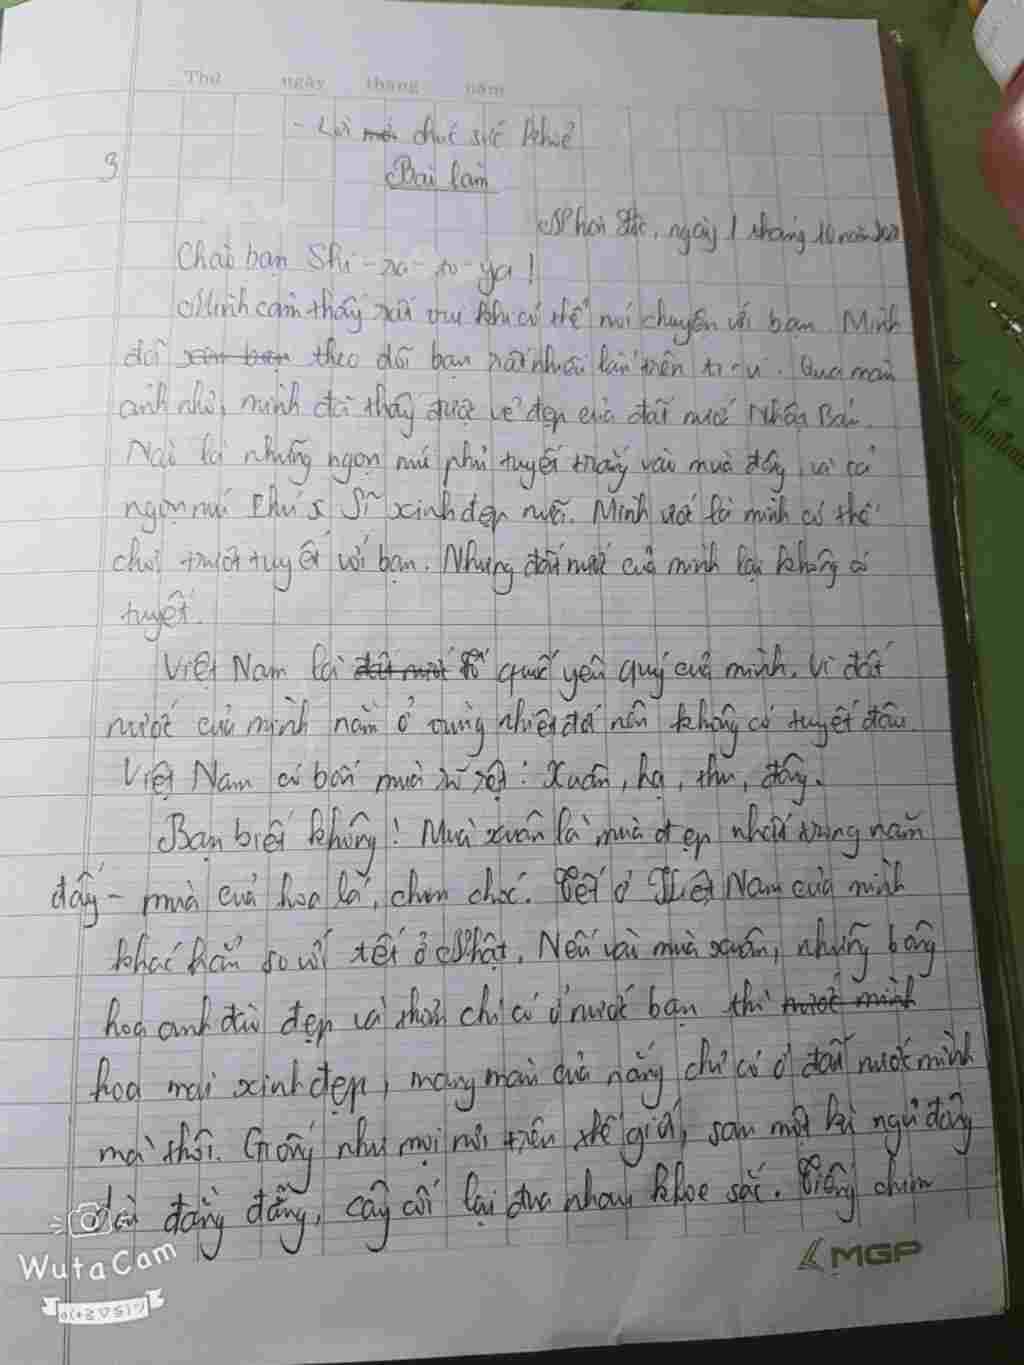 Thứ ngày tháng năm
- Lời chúc sức khoẻ
3
Bài làm
ngày 1 tháng 10 năm
Chào bạn Shi-za-ko-ya!
Mình cảm thấy rất vui khi có thể nói chuyện với bạn. Mình
đã theo dõi bạn rất nhiều lần trên ti-vi. Qua màn
ảnh nhỏ, mình đã thấy được vẻ đẹp của đất nước Nhật Bản.
Nào là những ngọn núi phủ tuyết trắng vào mùa đông, và cả
ngọn núi Phú Sĩ xinh đẹp nữa. Mình ước là mình có thể
chơi trượt tuyết với bạn. Nhưng đất nước của mình lại không có
tuyết.
Việt Nam là tổ quốc yêu quý của mình. Vì đất
nước của mình nằm ở vùng nhiệt đới nên không có tuyết đâu.
Việt Nam có bốn mùa rõ rệt: Xuân, hạ, thu, đông.
Bạn biết không! Mùa xuân là mùa đẹp nhất trong năm
đấy - mùa của hoa lá, chim chóc. Tết ở Việt Nam của mình
khác hẳn so với tết ở Nhật. Nếu vào mùa xuân, những bông
hoa anh đào đẹp và thơm chỉ có ở nước bạn thì nước mình
hoa mai xinh đẹp, mang màu của nắng chỉ có ở đất nước mình
mà thôi. Giống như mọi nơi trên thế giới, sau một kì ngủ đông
dài đằng đẵng, cây cối lại đua nhau khoe sắc. Tiếng chim
MGP
WutaCam